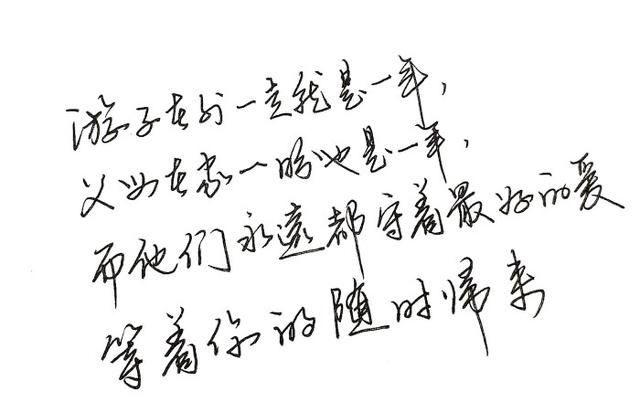 游子在外一走就是一年，
父母在家一盼也是一年，
而他们永遠都守着最好的爱
等着你的随时归来